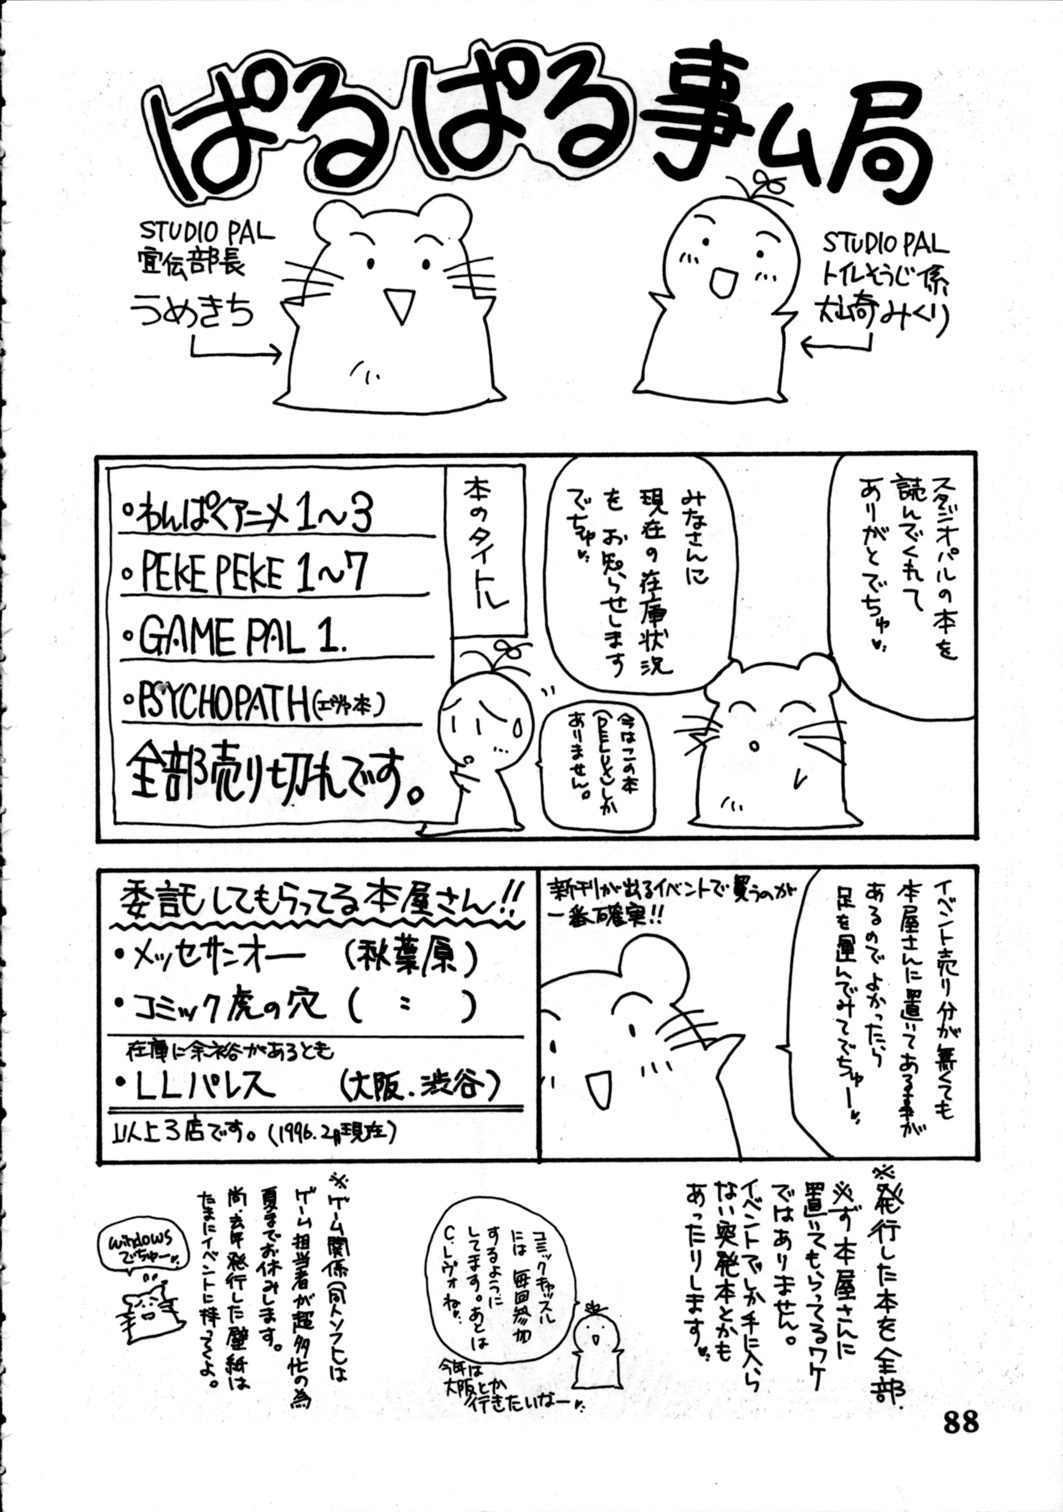 ぱるぱる事ム局
STUDIO PAL
宣伝部長
うめきち
STUDIO PAL
トイレそうじ係
太山奇みくり
スタジオパルの本を
読んでくれて
ありがとでちゅ
みなさんに
現在の在庫状況
を お知らせします
でちゅ
今はこの本
しか
ありません。
本のタイトル
・わんぱくアニメ 1〜3
・PEKE PEKE 1〜7
・GAME PAL 1.
・PSYCHOPATH(エヴァ本)
全部売り切れです。
イベント売り分が無くても
本屋さんに置いてある事が
あるのでよかったら
足を運んでみてでちゅー
新刊が出るイベントで買うのが
一番確実!!
委託してもらってる本屋さん!!
・メッセサンオー (秋葉原)
・コミック虎の穴 ( 〃 )
在庫に余裕があるとも
・LLパレス (大阪.渋谷)
以上3店です。(1996.2月現在)
※発行した本を全部
必ず本屋さんに
置いてもらってるワケ
ではありません。
イベントでしか手に入ら
ない突発本とかも
あったりします
コミックキャッスル
には毎回参加
するように
してます。あとは
C.レヴォね。
今年は
大阪とか
行きたいなー
※ゲーム関係(同人ソフト)は
ゲーム担当者が超多忙の為
夏までお休みします。
尚、去年発行した壁紙は
たまにイベントに持ってくよ。
windows
でちゅー
88